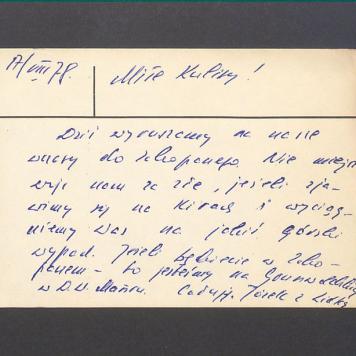 17/VIII 78. Miłe Kuliny!
Dziś wyruszamy na nasze
wczasy do Zakopanego. Nie miejcie
nam za złe, jeżeli zja-
wimy się na Kirach i wyciąg-
niemy Was na jakiś górski
wypad. Jeżeli będziecie w Zako-
panem - to jesteśmy na
w D.W. Całuję. Józek z